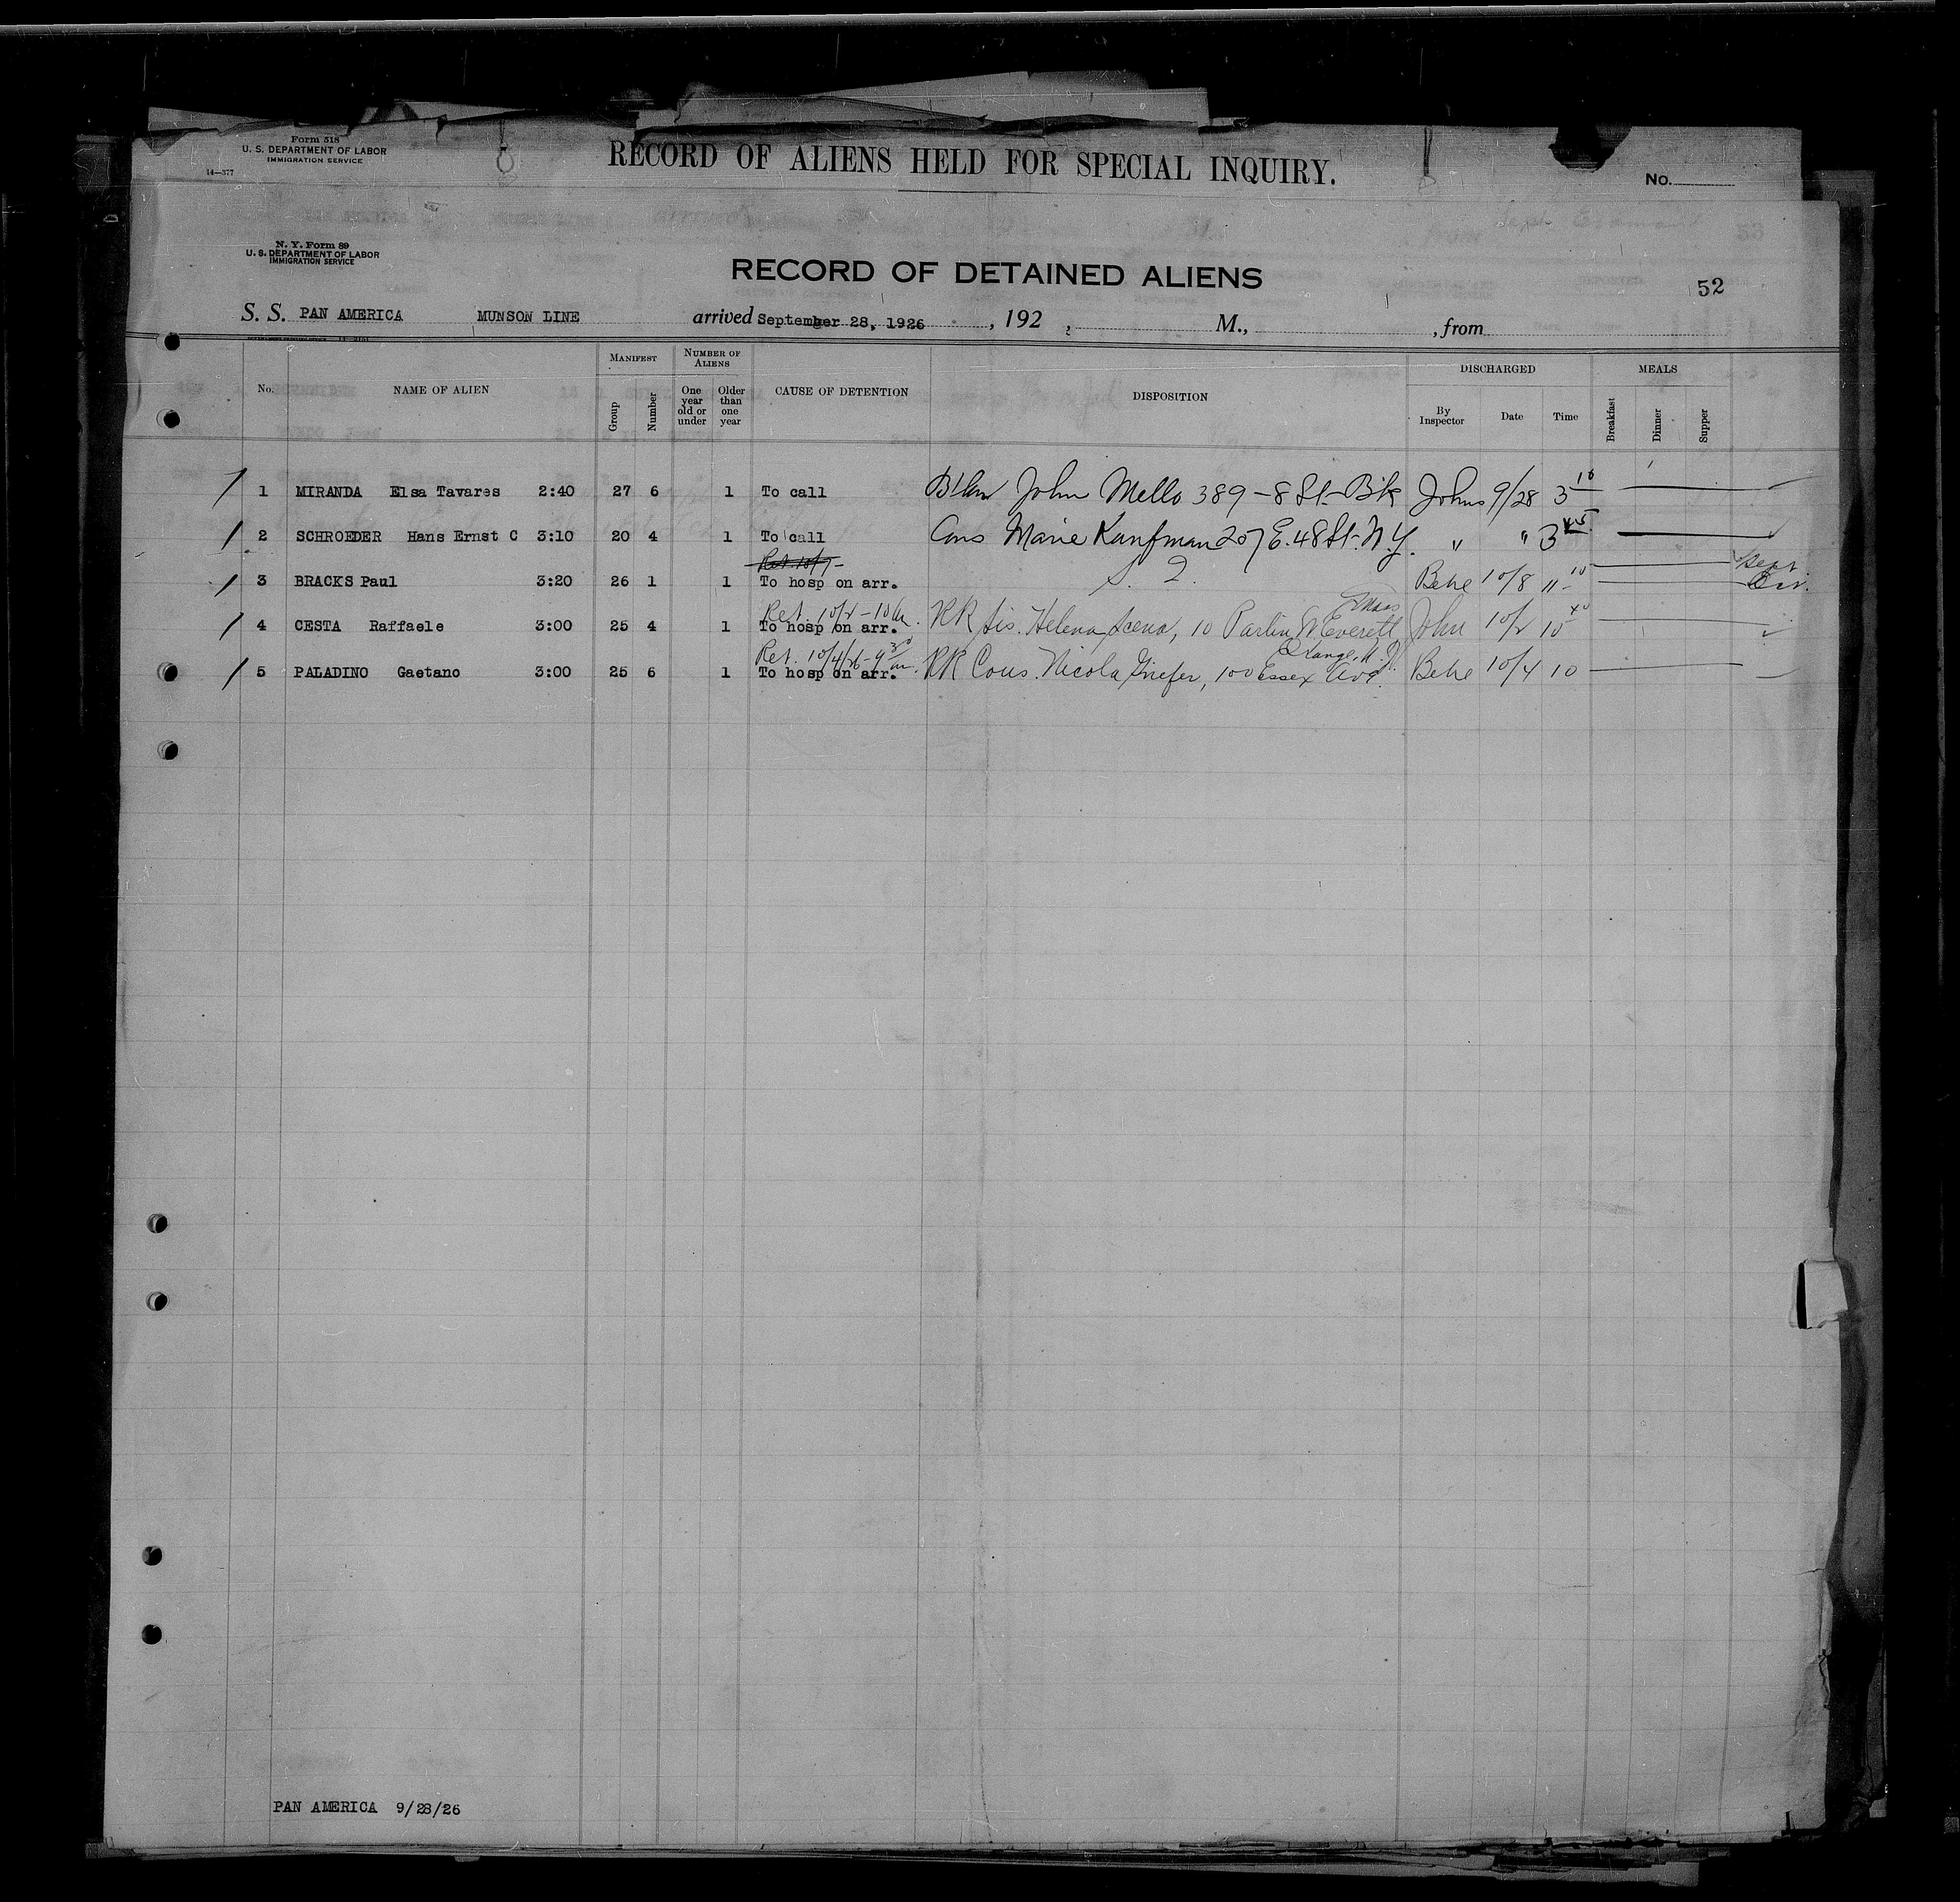 Form 518
U. S. DEPARTMENT OF LABOR
IMMIGRATION SERVICE
14—377
RECORD OF ALIENS HELD FOR SPECIAL INQUIRY.
No.
N. Y. Form 89
U. S. DEPARTMENT OF LABOR
IMMIGRATION SERVICE
RECORD OF DETAINED ALIENS
52
S. S. PAN AMERICA MUNSON LINE arrived September 28, 1926, 192 , M., , from
No. NAME OF ALIEN MANIFEST Group Number NUMBER OF ALIENS One year old or under Older than one year CAUSE OF DETENTION DISPOSITION DISCHARGED By Inspector Date Time MEALS Breakfast Dinner Supper
1 MIRANDA Elsa Tavares 2:40 27 6 1 To call John Mello 389 - 8 St - Bk Johns 9/28 3 10
2 SCHROEDER Hans Ernst C 3:10 20 4 1 To call Cous Marie Kaufman 207 E. 48 St. N.Y. " " 3 45
Ret. 10/7 -
3 BRACKS Paul 3:20 26 1 1 To hosp on arr. 10/8 11 10
Ret. 10/2 - 10 Mass
4 CESTA Raffaele 3:00 25 4 1 To hosp on arr. RR Sis. Helena 10 Everett John 10/2 10 40
Ret. 10/4/26 - 9 30 Orange, N.J.
5 PALADINO Gaetano 3:00 25 6 1 To hosp on arr. RR Cous. Nicola 100 Essex Ave. 10/4 10
PAN AMERICA 9/28/26